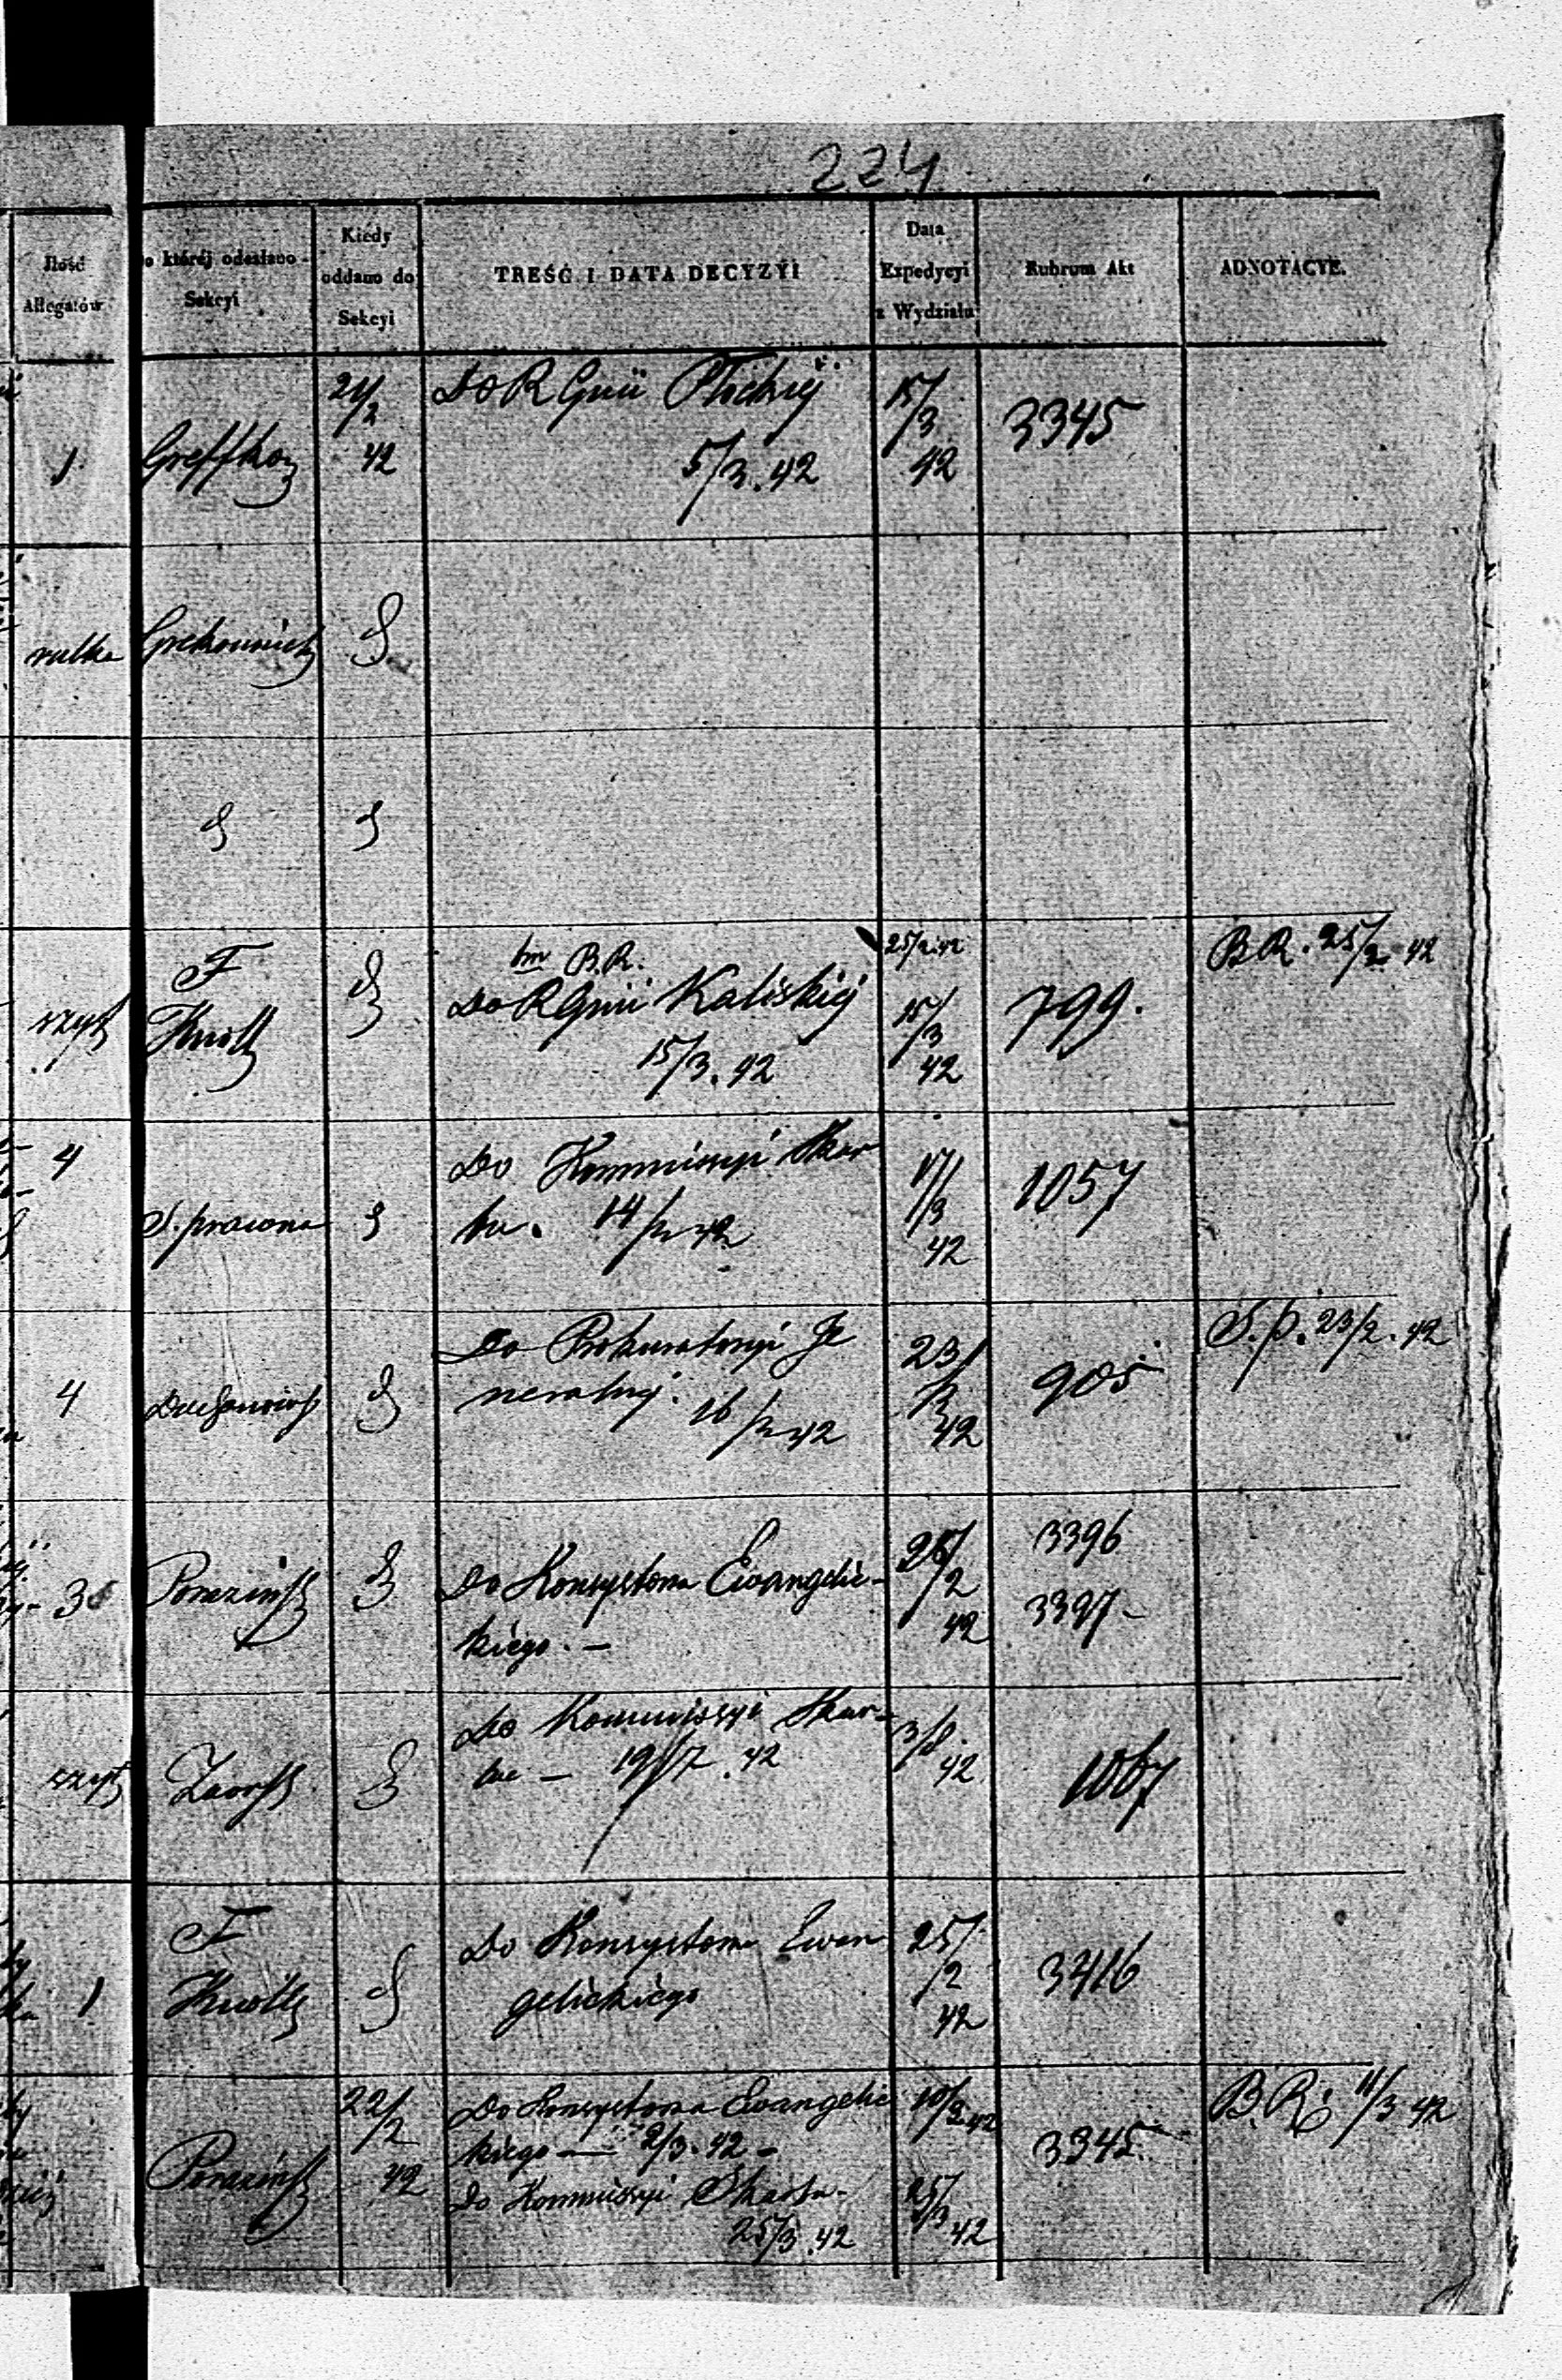 224
Ilość
Allegatów
o której odesłano
Sekcyi
Kiedy
oddano do
Sekcyi
TREŚĆ I DATA DECYZYI
Data
Expedycyi
z Wydziału
Rubrum Akt
ADNOTACYE.
1
21/2
42
Do R Gnii Płockiéj
5/3.42
15/3
42
3345
F
Knoll
B.R.
Do R Gnii Kaliskiéj
15/3.42
25/2.42
15/3
42
799.
B.R. 25/2 42
4
Do Kommissyi Skar
bu. 14/2 42
17/3
42
1057
4
Do Prokuratoryi Je
neralnej. 16/2 42
23/2
42
905
S.p. 23/2.42
3
Do Konsystorza Ewangelic-
kiego. —
26/2
42
3396
3397-
szyt
Do Kommissyi Skar-
bu — 19/7.42
3/8.
42
1067
1
F
Knoll
Do Konsystorza Ewan
gelickiego
25/2
42
3416
22/2
42
Do Konsystorza Ewangelic
kiego — 2/3.42 -
Do Kommissyi Skarbu-
25/3.42
25/3
42
3345.
B.R. 11/3 42